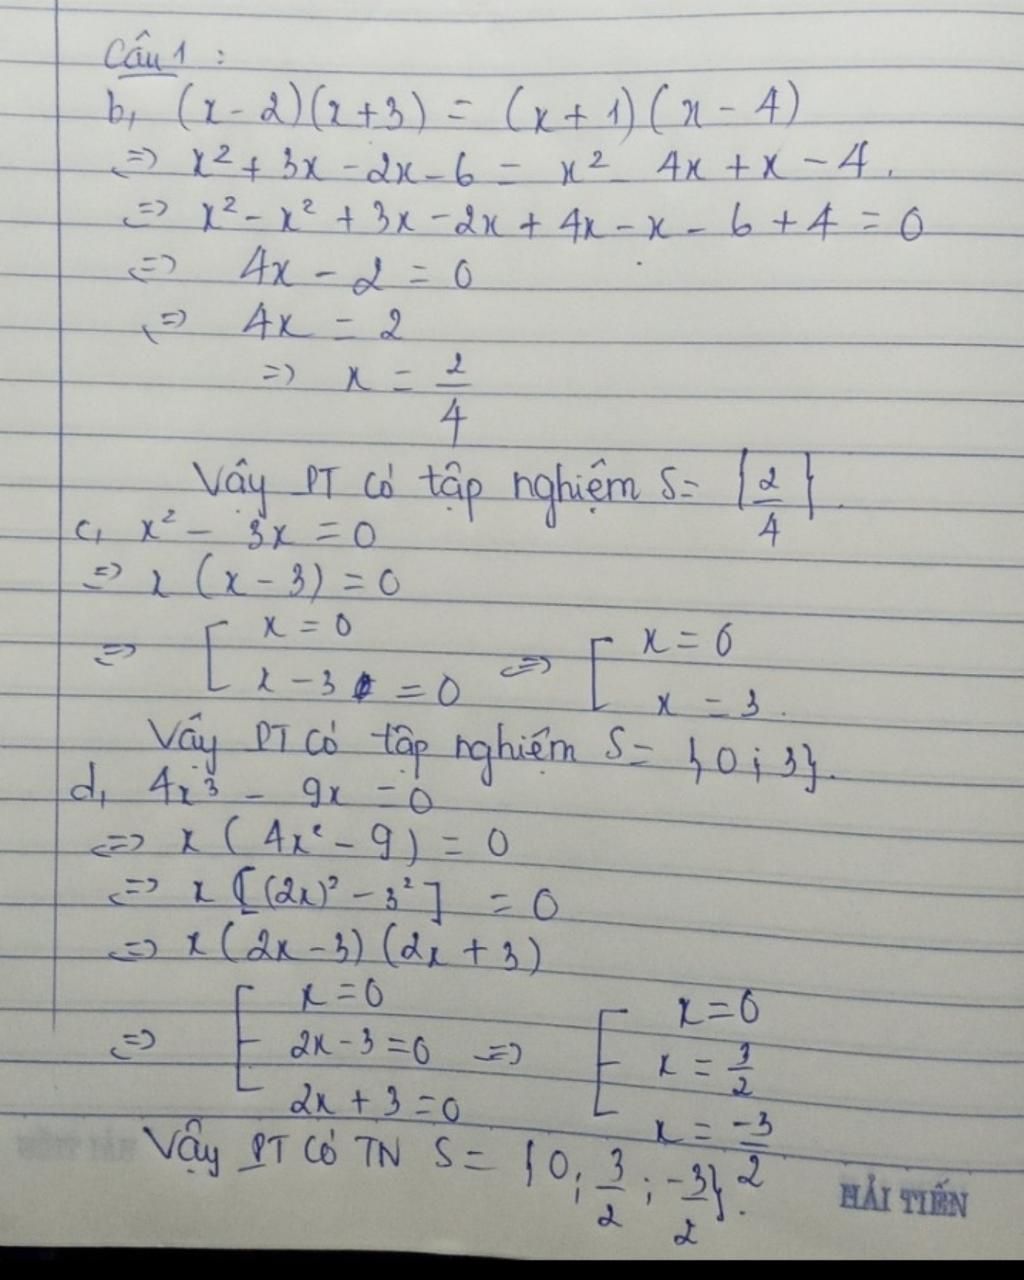 Câu 1 :
b, (x - 2)(x + 3) = (x + 1)(x - 4)
⇔ x² + 3x - 2x - 6 = x² 4x + x - 4.
⇔ x² - x² + 3x - 2x + 4x - x - 6 + 4 = 0
⇔ 4x - 2 = 0
⇔ 4x = 2
=> x = 2/4
Vậy PT có tập nghiệm S = {2/4}.
c, x² - 3x = 0
⇔ x (x - 3) = 0
⇔ [ x = 0 ; x - 3 = 0 ⇔ [ x = 0 ; x = 3.
Vậy PT có tập nghiệm S = {0 ; 3}.
d, 4x³ - 9x = 0
⇔ x (4x² - 9) = 0
⇔ x [(2x)² - 3²] = 0
⇔ x (2x - 3) (2x + 3)
⇔ [ x = 0 ; 2x - 3 = 0 ; 2x + 3 = 0 ⇔ [ x = 0 ; x = 3/2 ; x = -3/2
Vậy PT có TN S = {0 ; 3/2 ; -3/2}.
HẢI TIẾN